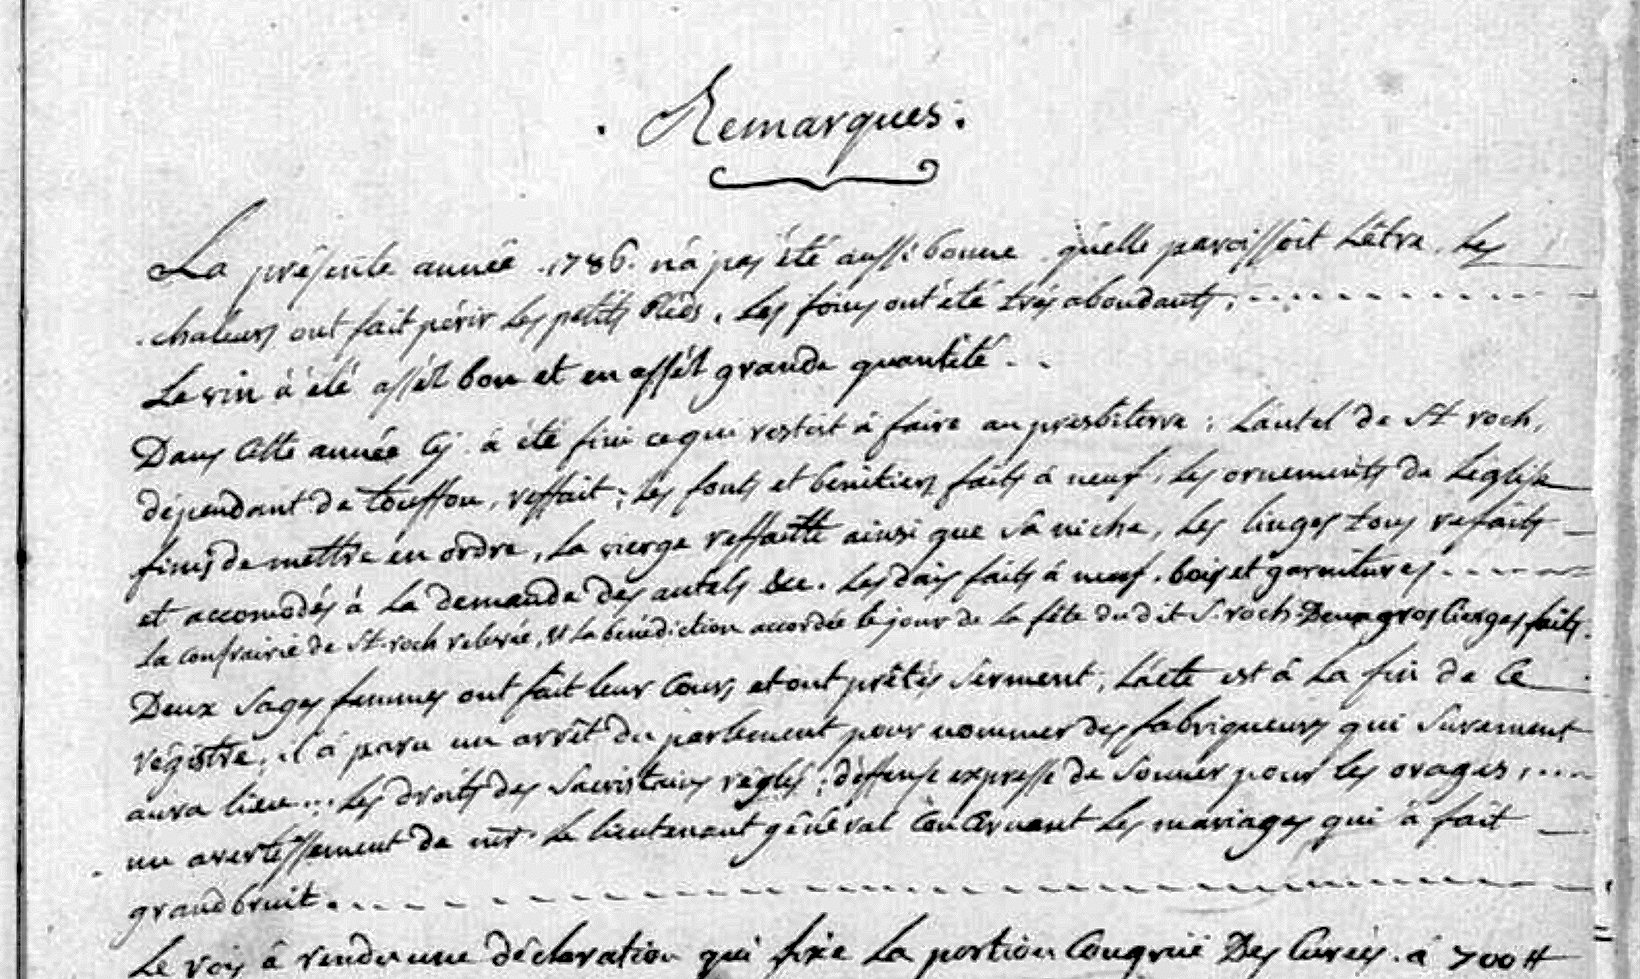 Remarques.
La présente année 1786. n'a pas été aussi bonne qu'elle paroissoit l'être. Les
chaleurs ont fait périr les petits bléds. Les foins ont été très abondants.
Le vin à été assés bon et en assés grande quantité.
Dans cette année cy à été fini ce qui restoit à faire au presbiterre ; L'autel de St roch,
dépendant de touffou, reffait ; les fonts et benitiers faits à neuf, les ornements de L'eglise
finis de mettre en ordre, La vierge reffaitte ainsi que sa niche, Les linges tous refaits
et accomodés à La demande des autels &ce. Les dais faits à neuf, bois et garnitures
La confrairie de St. roch relevée, et La bénédiction accordée le jour de La fête du dit S. roch. Deux gros Cierges faits.
Deux Sages femmes ont fait leur Cours et ont prêtés Serment ; L'acte est à La fin de Ce
régistre. il à paru un arrêt du parlement pour nommer des fabriqueurs qui Surement
aura lieu... Les droits des Sacristains réglés ; déffense expresse de Sonner pour les orages,
un avertissement de mr. Le lieutenant général Concernant Les mariages qui à fait
grand bruit.
Le roy à rendu une déclaration qui fixe La portion Congrue Des Curés. à 700 ₶